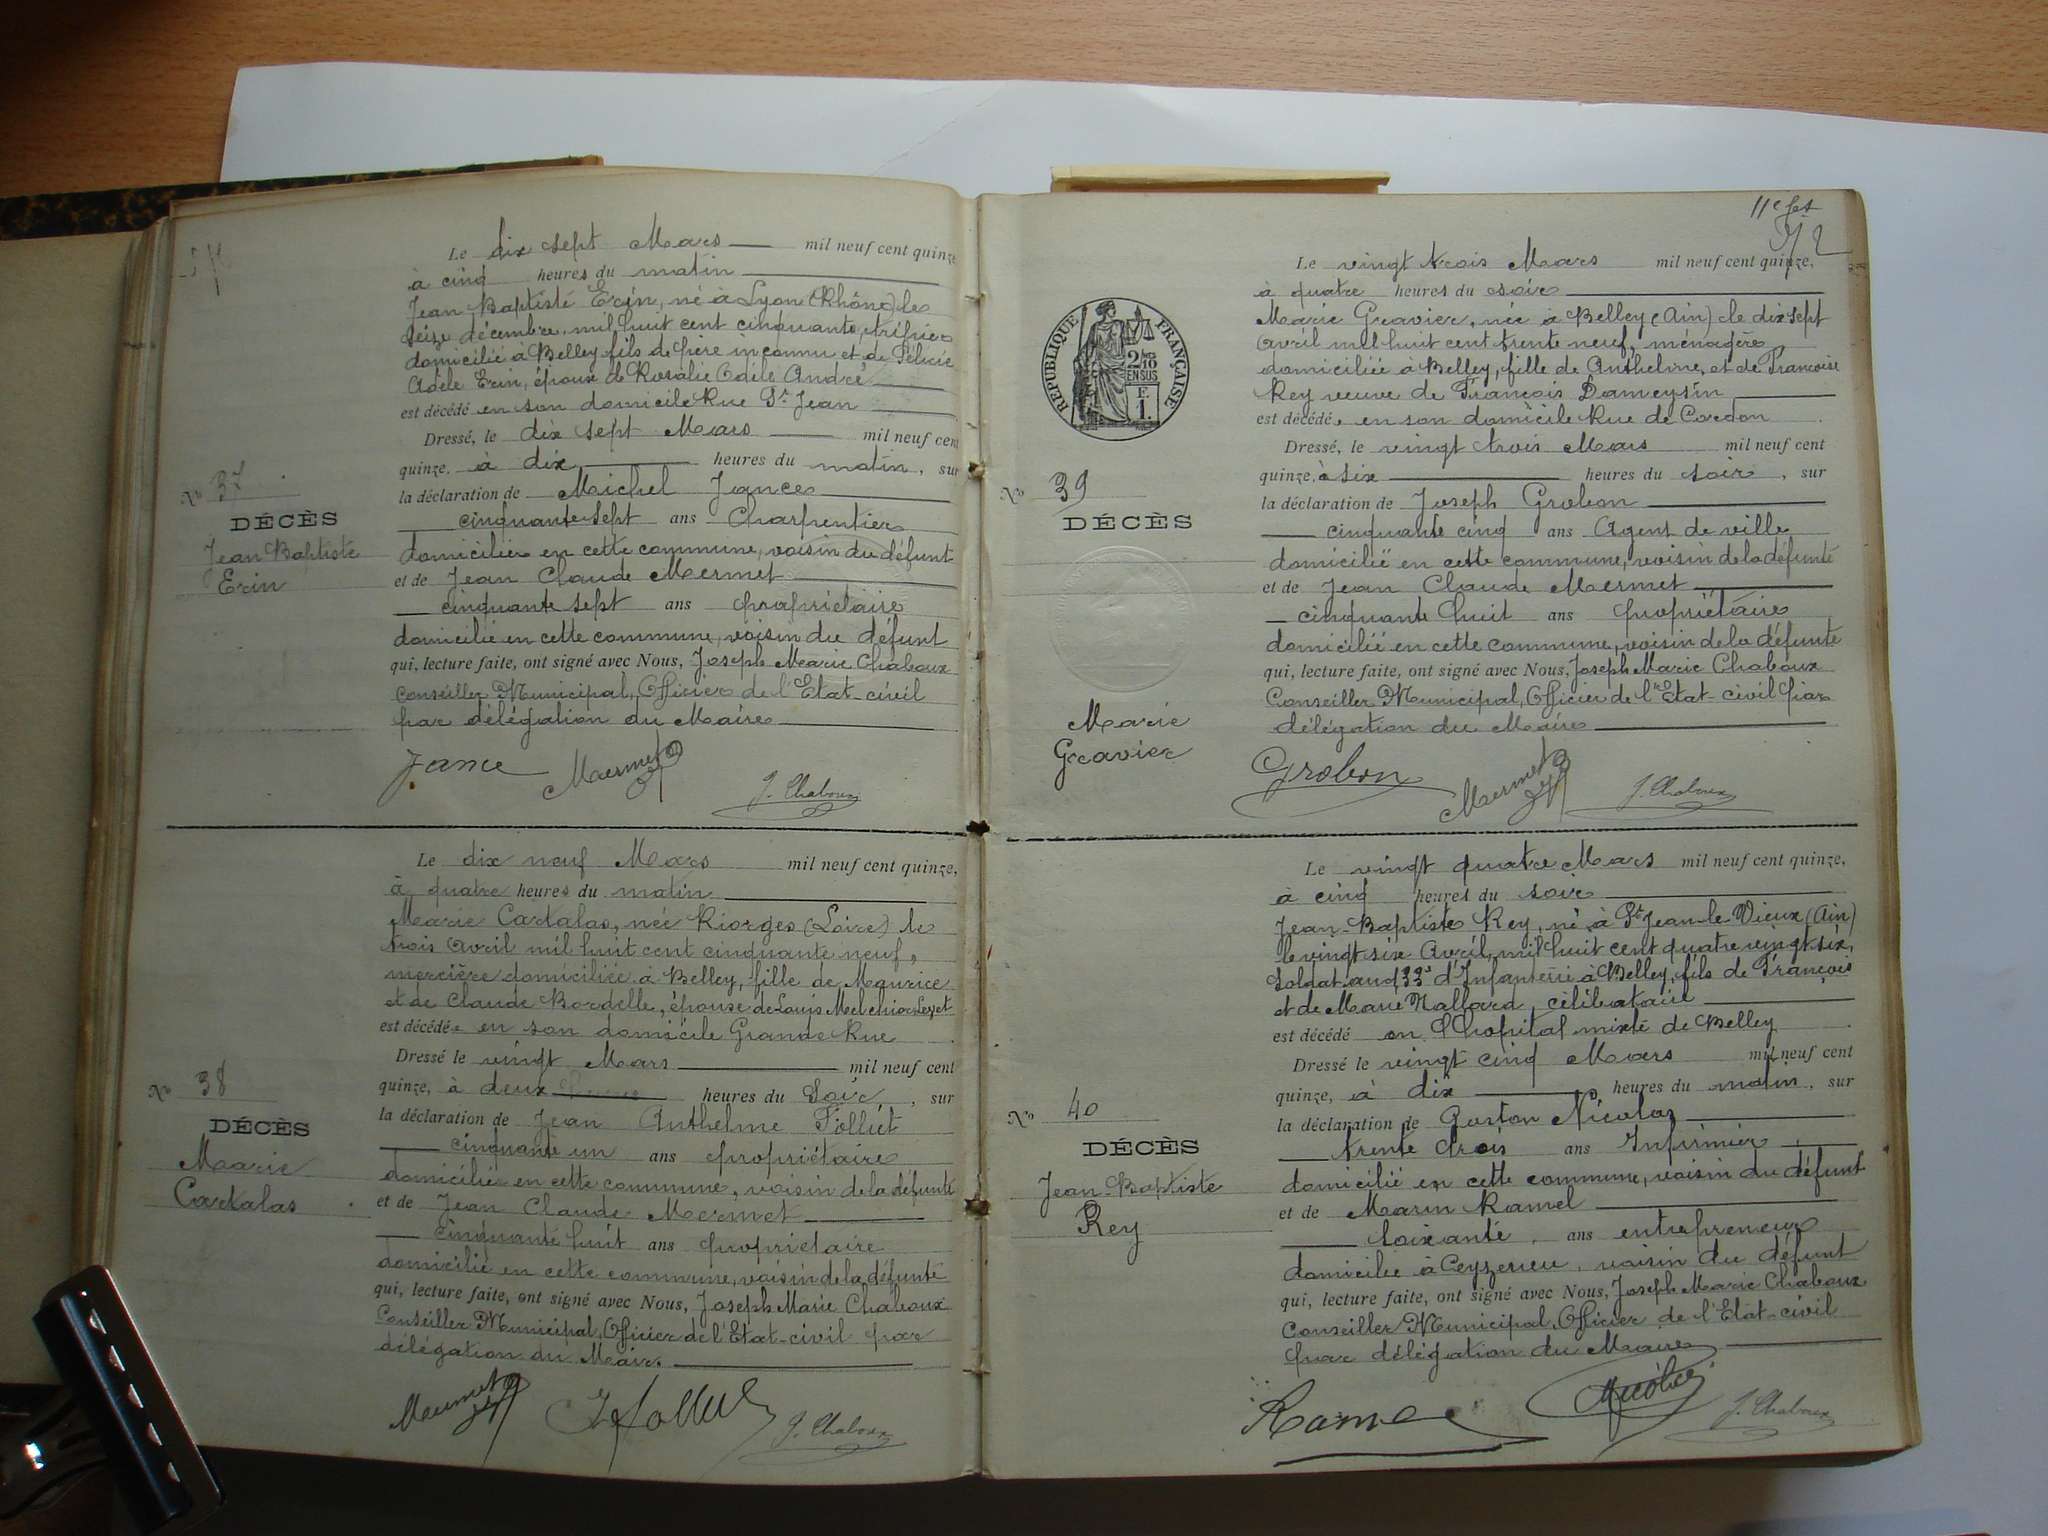 Le dix sept Mars mil neuf cent quinze
à cinq heures du matin
Jean Baptiste Erin, né à Lyon (Rhône) le
seize décembre mil huit cent cinquante, tréfilier
domicilié à Belley fils de père inconnu et de Félicie
Adèle Erin, époux de Rosalie Odile André
est décédé en son domicile Rue St Jean
Dressé, le dix sept Mars mil neuf cent
quinze, à dix heures du matin, sur
la déclaration de Michel Jance
cinquante sept ans Charpentier
domicilié en cette commune, voisin du défunt
et de Jean Claude Mermet
cinquante sept ans propriétaire
domicilié en cette commune, voisin du défunt
qui, lecture faite, ont signé avec Nous, Joseph Marie Chaboux
Conseiller Municipal, Officier de l'Etat-civil
par délégation du Maire
No 37
DÉCÈS
Jean Baptiste
Erin
Jance Mermet J. Chaboux
Le dix neuf Mars mil neuf cent quinze,
à quatre heures du matin
Marie Cartalas, née Riorges (Loire) le
trois Avril mil huit cent cinquante neuf,
mercière domiciliée à Belley, fille de Maurice
et de Claude Bordelle, épouse de Louis Melchior
est décédée en son domicile Grande Rue
Dressé le vingt Mars mil neuf cent
quinze, à deux heures du Soir, sur
la déclaration de Jean Anthelme Folliet
cinquante un ans propriétaire
domicilié en cette commune, voisin de la défunte
et de Jean Claude Mermet
cinquante huit ans propriétaire
domicilié en cette commune, voisin de la défunte
qui, lecture faite, ont signé avec Nous, Joseph Marie Chaboux
Conseiller Municipal, Officier de l'Etat-civil par
délégation du Maire
No 38
DÉCÈS
Marie
Cartalas
Mermet Folliet J. Chaboux
11e fet
RÉPUBLIQUE FRANÇAISE
2/10
EN SUS
F.
1.
Le vingt trois Mars mil neuf cent quinze,
à quatre heures du soir
Marie Gravier, née à Belley (Ain) le dix sept
avril mil huit cent trente neuf, ménagère
domiciliée à Belley, fille de Anthelme, et de Françoise
Rey veuve de François Dameysin
est décédée en son domicile Rue de Cordon
Dressé, le vingt trois Mars mil neuf cent
quinze, à six heures du soir, sur
la déclaration de Joseph Grobon
cinquante cinq ans Agent de ville
domicilié en cette commune, voisin de la défunte
et de Jean Claude Mermet
cinquante huit ans propriétaire
domicilié en cette commune, voisin de la défunte
qui, lecture faite, ont signé avec Nous, Joseph Marie Chaboux
Conseiller Municipal, Officier de l'Etat-civil par
délégation du Maire
No 39
DÉCÈS
Marie
Gravier
Grobon Mermet J. Chaboux
Le vingt quatre Mars mil neuf cent quinze,
à cinq heures du soir
Jean-Baptiste Rey, né à St Jean-le-Vieux (Ain)
le vingt six Avril mil huit cent quatre vingt six,
soldat au 133e d'Infanterie à Belley, fils de François
et de Marie Nallard, célibataire
est décédé en l'hopital mixte de Belley
Dressé le vingt cinq Mars mil neuf cent
quinze, à dix heures du matin, sur
la déclaration de Gaston Nicolas
trente trois ans Infirmier
domicilié en cette commune, voisin du défunt
et de Marin Ramel
soixante ans entrepreneur
domicilié à Ceyzerieu, voisin du défunt
qui, lecture faite, ont signé avec Nous, Joseph Marie Chaboux
Conseiller Municipal, Officier de l'Etat-civil
par délégation du Maire
No 40
DÉCÈS
Jean-Baptiste
Rey
Ramel Nicolas J. Chaboux